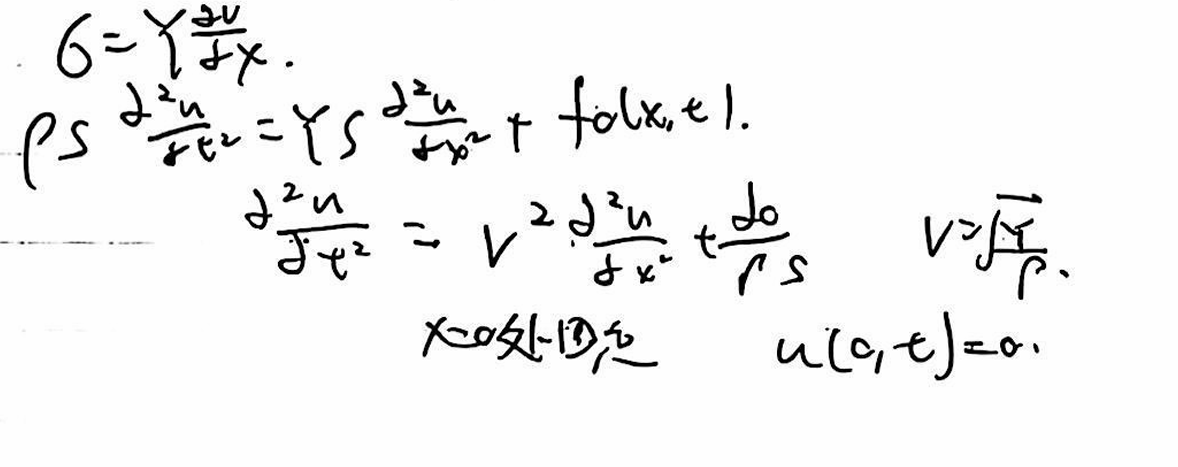 σ = Y ∂u/∂x.
ρS ∂²u/∂t² = YS ∂²u/∂x² + f₀(x, t).
∂²u/∂t² = v² ∂²u/∂x² + f₀/ρS v = √Y/ρ.
x=0处固定 u(0, t) = 0.